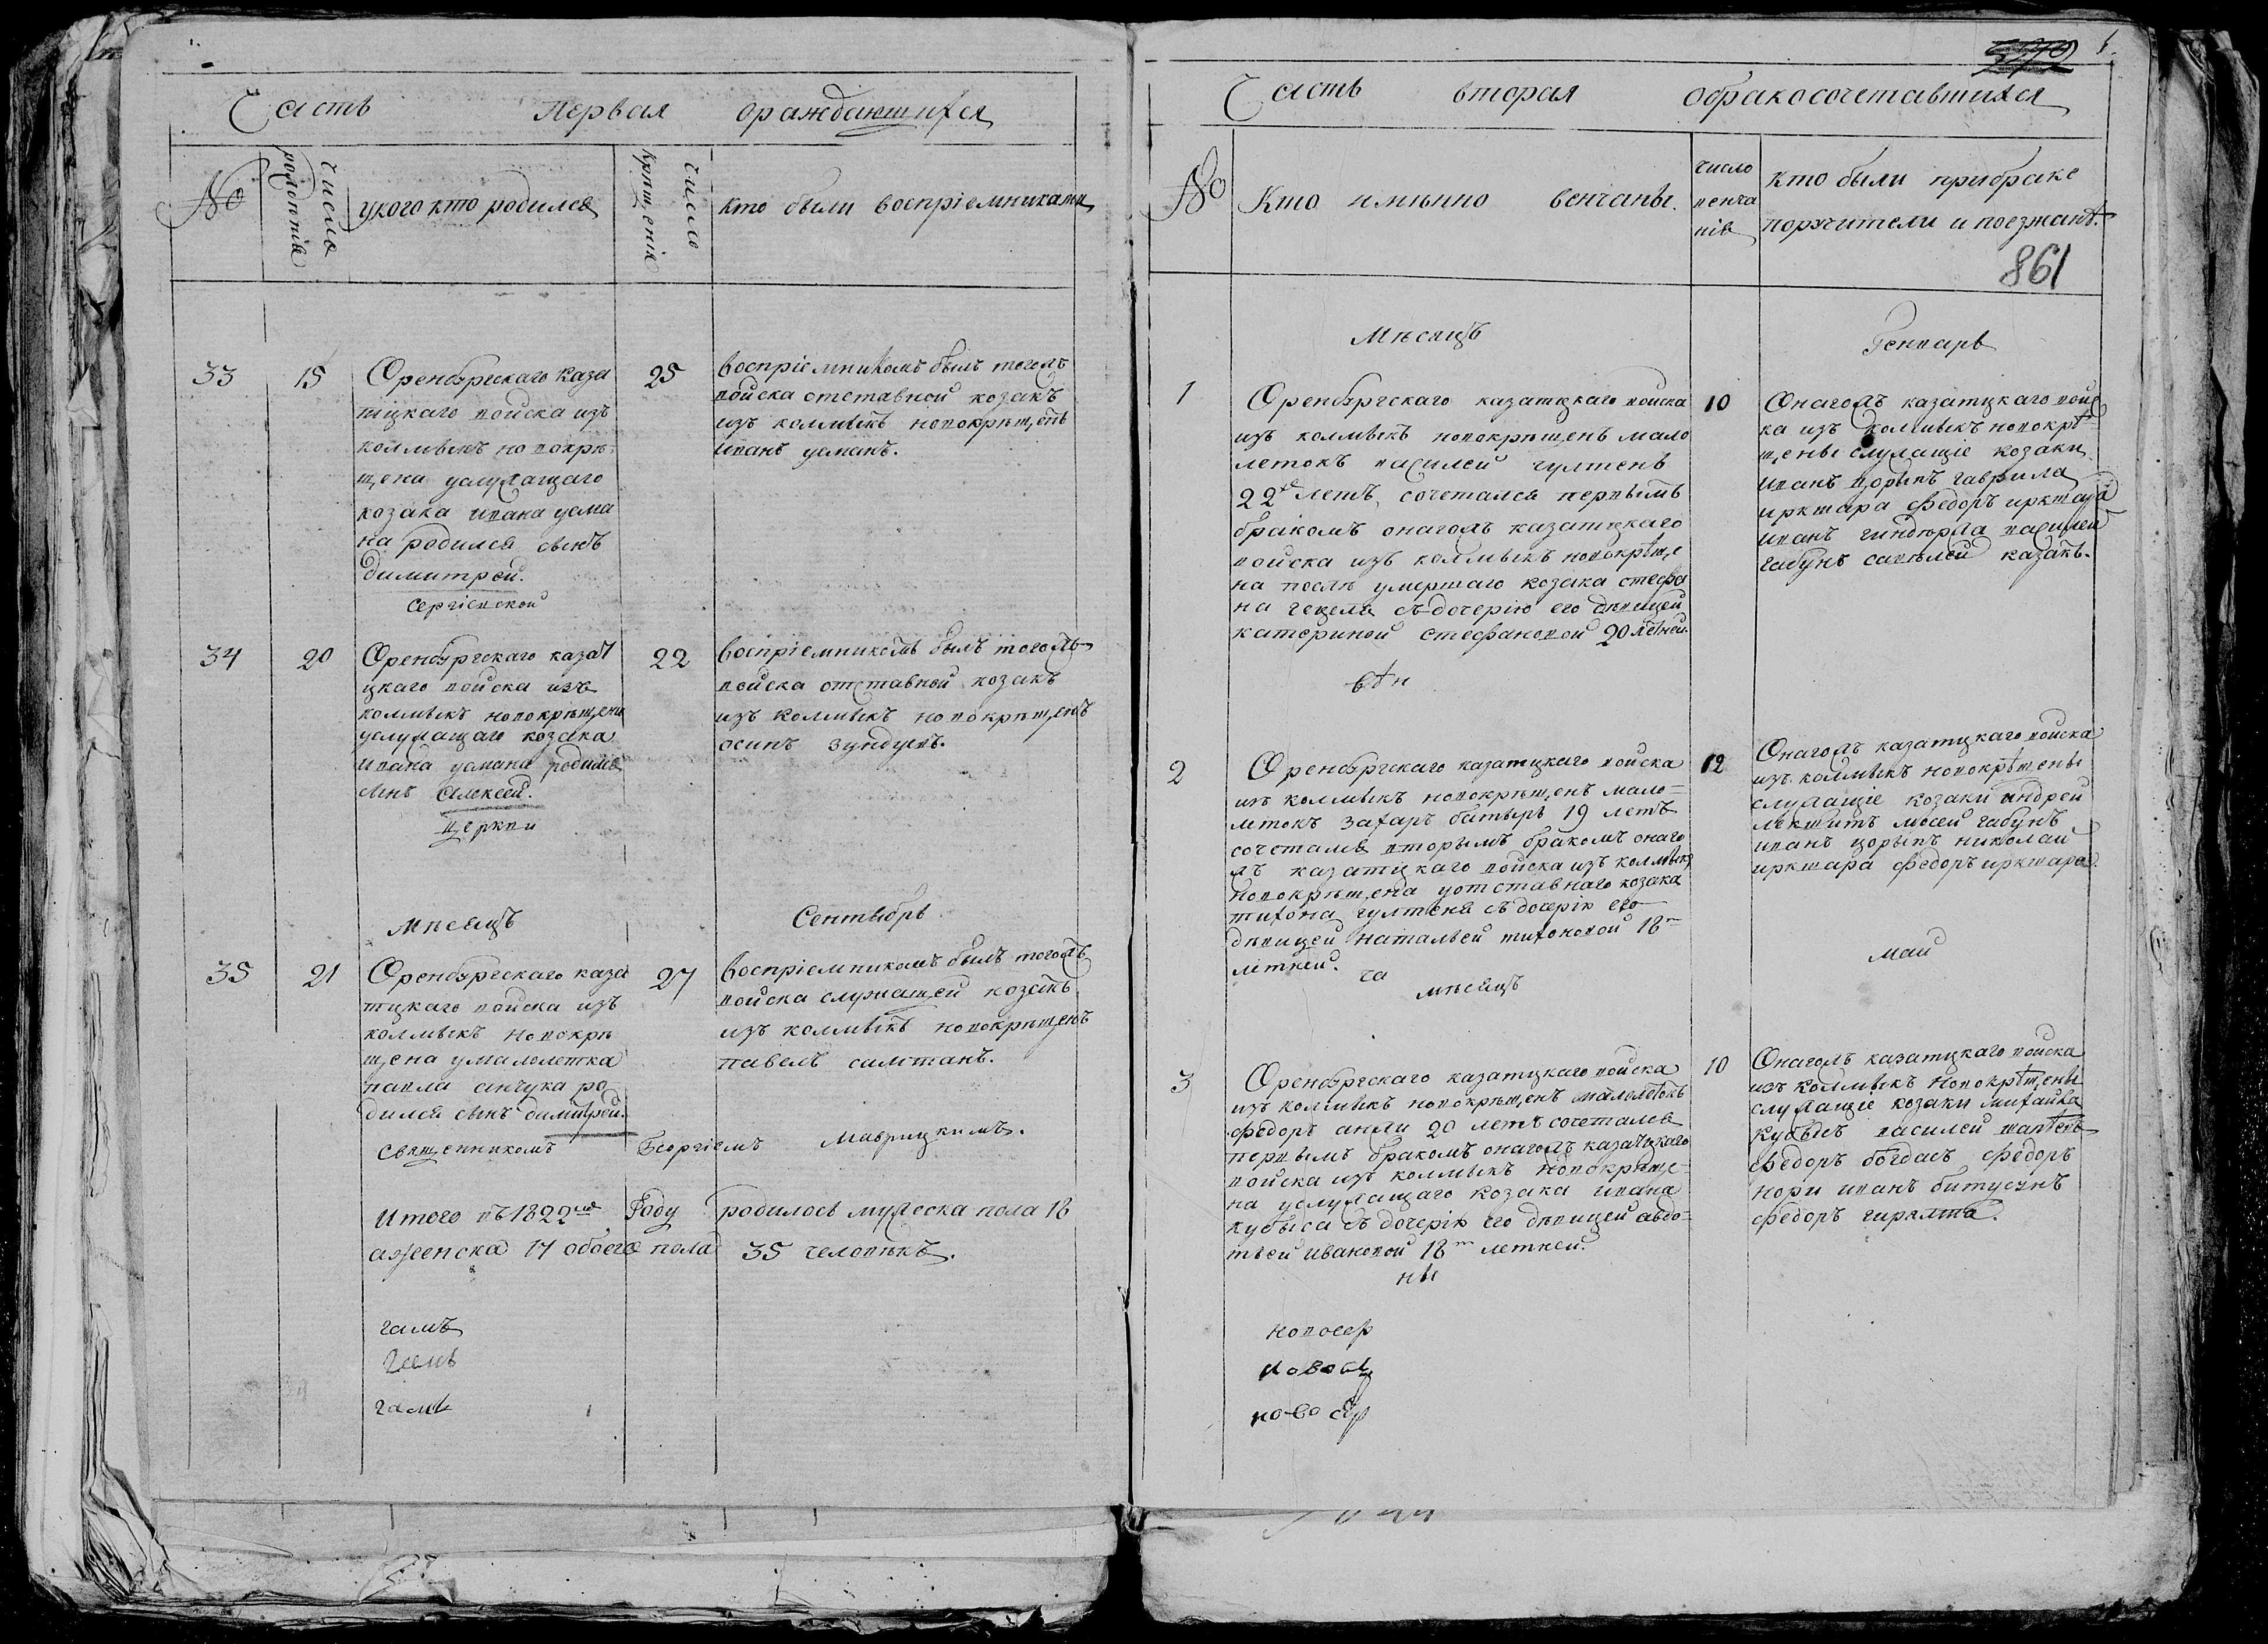 Часть Первая ораждающихся
№
число рождениѣ
укого кто родился
число крѣщениѣ
кто были воспріемниками
33 15
Оренбургскаго каза
тцкаго войска изъ
колмыкъ новокрѣ
щена услужащаго
козака ивана усма
на родился сынъ
димитрей.
Сергіевской
25
воспріемникомъ былъ тогожъ
войска отставной козакъ
изъ колмыкъ новокрѣщенъ
иванъ усманъ.
34 20
Оренбургскаго казат
цкаго войска изъ
колмыкъ новокрѣщена
услужащаго козака
ивана усмана родился
сынъ алексей.
Церкви
22
воспріемникомъ былъ тогожъ
войска отставной козакъ
изъ колмыкъ новокрѣщенъ
осипъ зундуевъ.
мѣсяцъ Сентябрь
35 21
Оренбургскаго каза
тцкаго войска изъ
колмыкъ новокрѣ
щена умалолетка
павла анчука ро
дился сынъ димитрей.
27
воспріемникомъ былъ тогожъ
войска служащей козакъ
изъ колмыкъ новокрѣщенъ
павелъ салтанъ.
Священникомъ Георгіемъ Маврицкимъ.
Итого въ 1822мъ Году родилось мужеска пола 18
аженска 17 обоего пола 35 человѣкъ.
чамъ
чемъ
чамъ
1
Часть вторая обракосочетавшихся
№
Кто имѣнно венчаны.
число
венча
нія
Кто были прибраке
поручители и поезжанѣ.
861
Мѣсяцъ Генварь
1
Оренбургскаго казатцкаго войска
изъ колмыкъ новокрѣщенъ мало
летокъ василей чултенъ
22хъ летъ, сочетался первымъ
бракомъ онагожъ казатцкаго
войска изъ колмыкъ новокрѣще
на послѣ умершаго козака стефа
на чецела съ дочерію его дѣвицей
катериной стефановой 20 лѣтней.
10
Онагожъ казатцкаго войс
ка изъ колмыкъ новокрѣ
щены служащіе козаки
иванъ цорыпъ гаврила
иркшара федоръ иркшара
иванъ гиндюрла василей
габунъ савѣлей казакъ.
вѣн
2
Оренбургскаго казатцкаго войска
изъ колмыкъ новокрѣщенъ мало=
летокъ захаръ батыръ 19 летъ
сочетался вторымъ бракомъ онаго
жъ казатцкаго войска изъ колмыкъ
новокрѣщена уотставнаго козака
тихона чултена съ дочерію его
дѣвицей натальей тихоновой 18ти
лѣтней.
12
Онагожъ казатцкаго войска
изъ колмыкъ новокрѣщены
служащіе козаки андрей
лекшитъ мосей габунъ
иванъ цорыпъ николай
иркшара федоръ иркшара.
ча
мѣсяцъ май
3
Оренбургскаго казатцкаго войска
изъ колмыкъ новокрѣщенъ малолѣтокъ
федоръ анли 20 летъ сочетался
первымъ бракомъ онагожъ казатцкаго
войска изъ колмыкъ новокрѣще=
на услужащаго козака ивана
кубыса съ дочерію его дѣвицей авдо=
тьей ивановой 18ти летней.
10
Онагожъ казатцкаго войска
изъ колмыкъ новокрѣщены
служащіе козаки михайла
кубысъ василей шаптенъ
федоръ богдасъ федоръ
нори иванъ битусунъ
федоръ гирялта.
ны
новосер
новосе
новосер